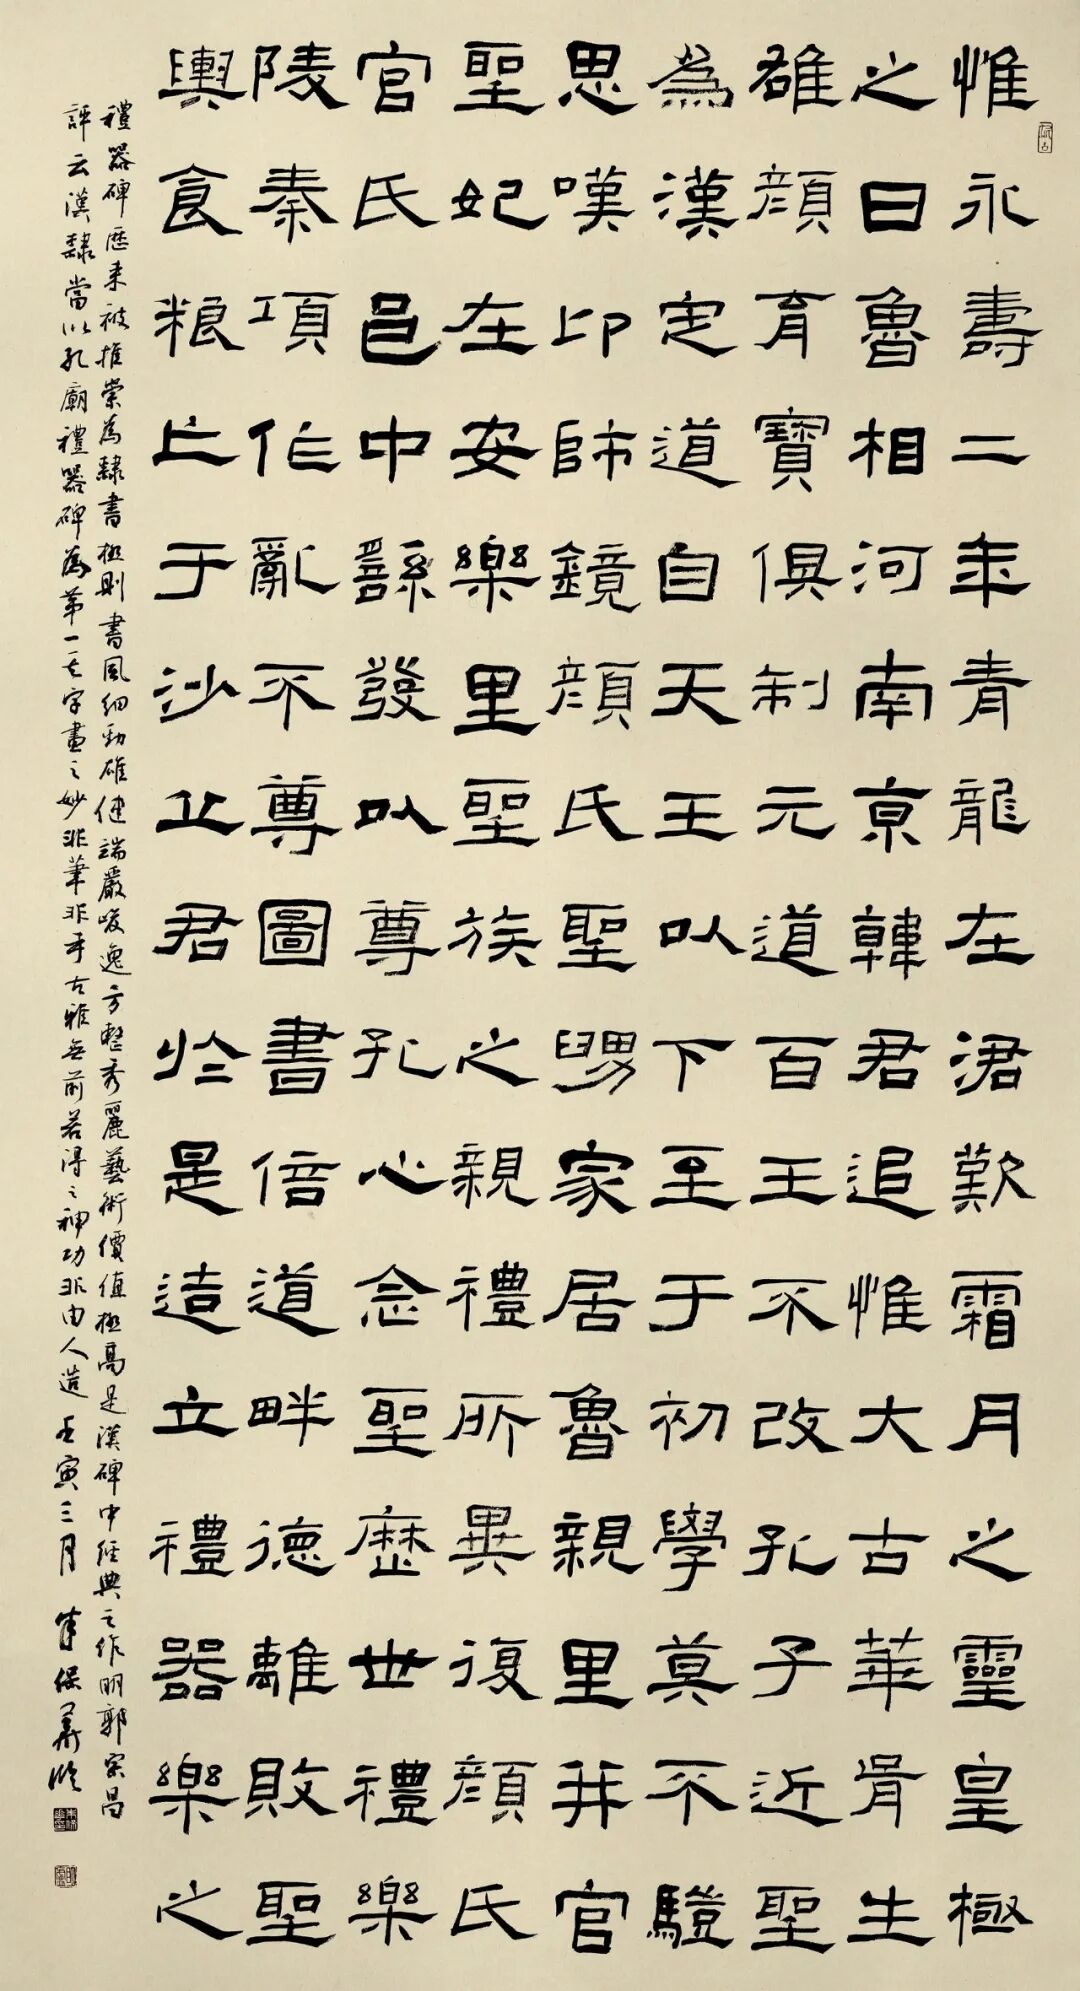 惟永壽二年青龍在涒歎霜月之靈皇極
之日魯相河南京韓君追惟大古華胥生
雄顏育寶俱制元道百王不改孔子近聖
為漢定道自天王以下至于初學莫不驥
思嘆卬師鏡顏氏聖舅家居魯親里并官
聖妃在安樂里聖族之親禮所異復顏氏
官氏邑中繇發以尊孔心念聖歷世禮樂
陵秦項作亂不尊圖書倍道畔德離敗聖
輿食粮亡于沙丘君於是造立禮器樂之
禮器碑歷来被推崇為隸書極則書風細勁雄健端嚴峻逸方整秀麗藝術價值極高是漢碑中經典之作明郭宗昌
評云漢隸當以孔廟禮器碑為第一其字畫之妙非筆非手古雅無前若得之神功非由人造壬寅三月保華臨